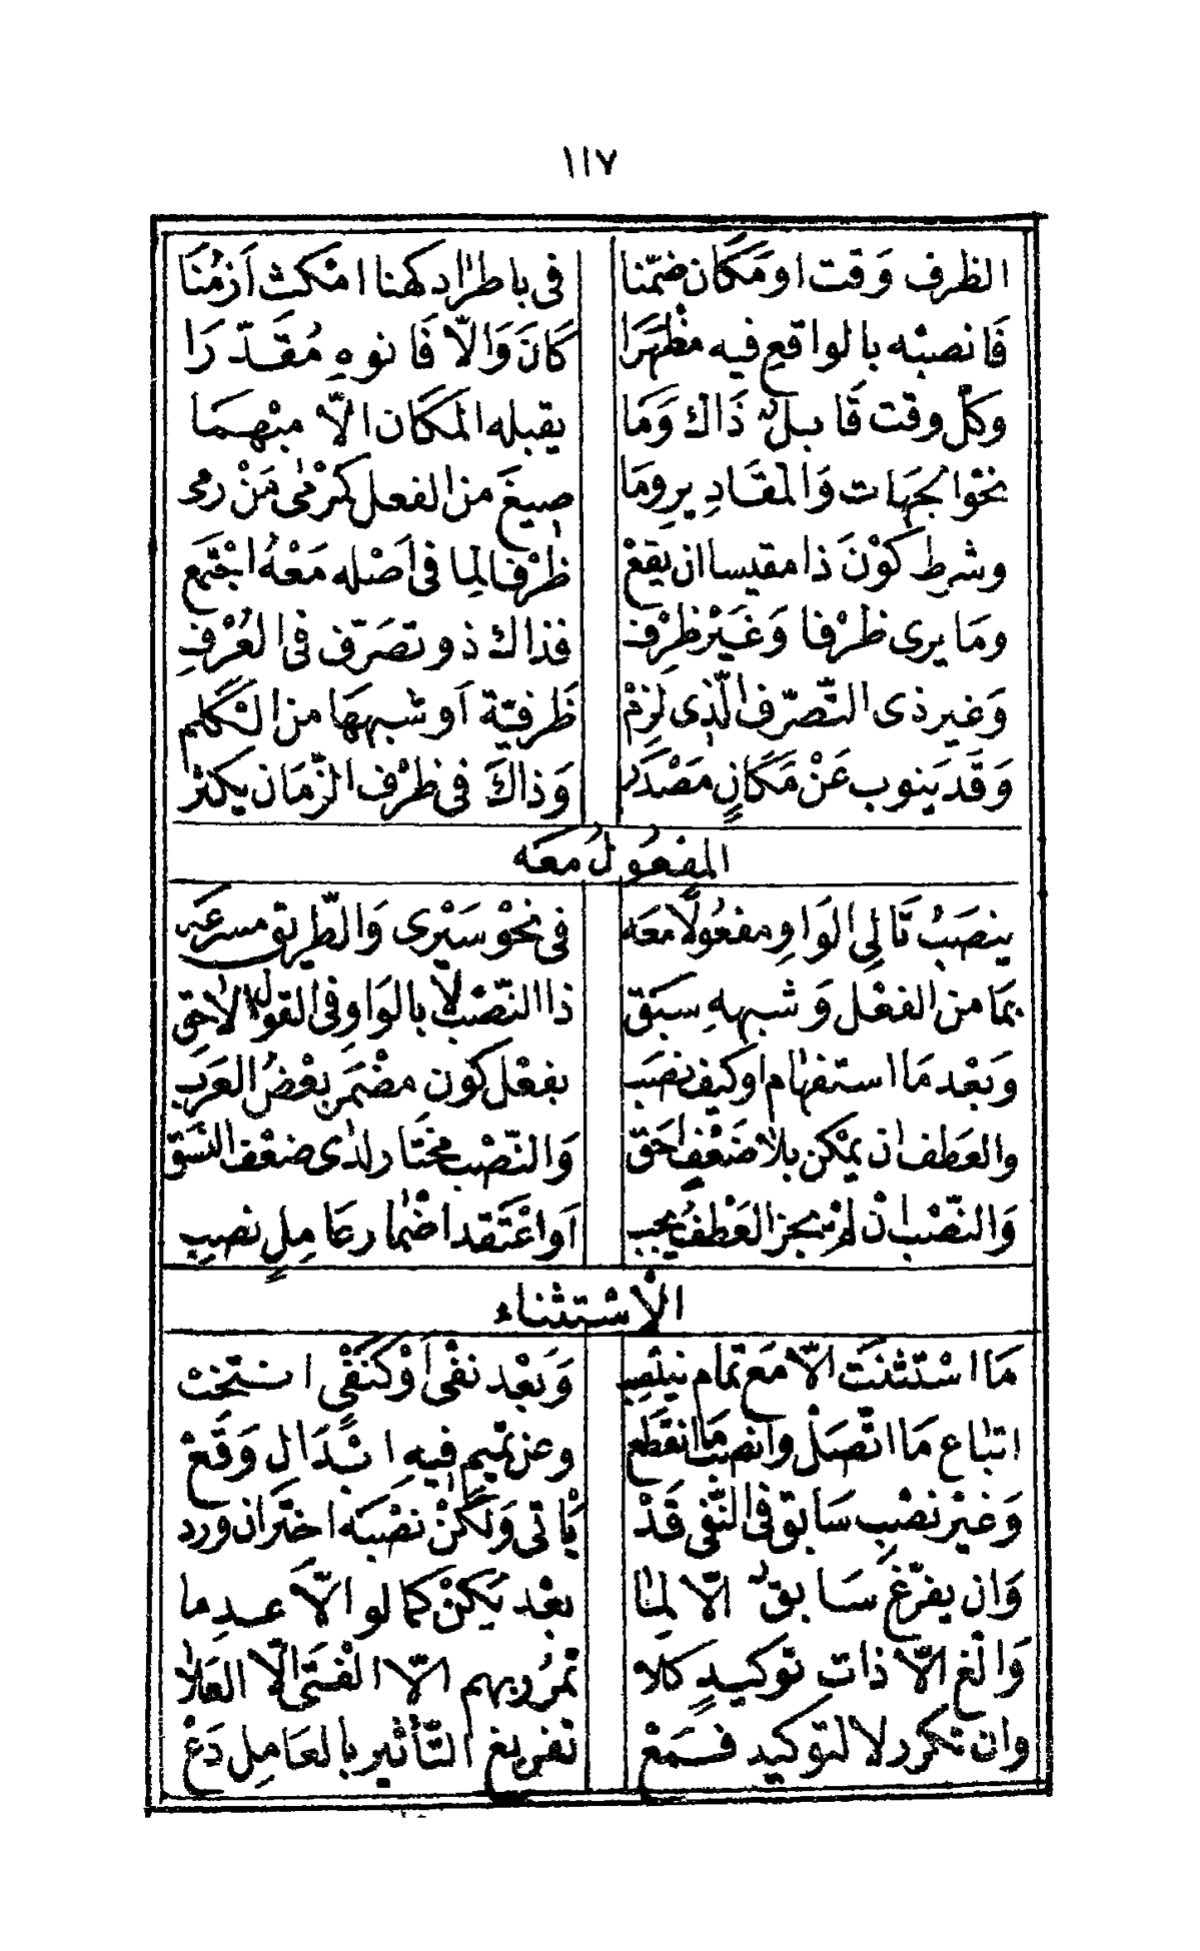 ١١٧
الظرف وَقت او مَكَان ضمّنا في باطراد كهنا امكث اَزمُنَا
فَانصبْه بالواقعِ فيه مظْهَرَا كَانَ وَالاّ فَانوهِ مُقَدّرَا
وَكلّ وقت قَابلٌ ذَاكَ وَمَا يقبله المَكَان الاّ مبْهَمَا
نحْو الجهَات وَالمقَادِيرِ وَمَا صِيغَ من الفعل كمَرْمٰى مَنْ رمى
وشرط كَوْنَ ذا مقيسا ان يَقعْ ظرْفا لِما في اَصْله مَعْهُ اجْتَمع
ومَا يرى ظرْفا وَغَيْر ظرْفِ فذاك ذو تصَرّف في العُرْفِ
وَغير ذى التّصَرّف الّذى لزِمْ ظَرفيّة اَو شبههَا من الكَلم
وَقَد يَنوب عَنْ مَكَانٍ مَصْدَر وَذاكَ في ظرْف الزّمَان يكثر
المفعُولُ مَعَه
ينصَبُ تَالِى الوَاوِ مفعُولًا مَعَه في نحْو سَيْرى وَالطّريق مسرعَه
بمَا من الفعْل وَشبههِ سَبَقْ ذا النّصْب لَا بالوَاو في القولِ الاَحَقّ
وَبَعْد مَا استفهَام او كَيف نصَبْ بفعْل كَون مضْمَر بعْضُ العَرَب
والعَطف ان يمْكن بلَا ضَعْف اَحَقّ وَالنّصْب مختَار لدٰى ضعْف النسَق
وَالنّصْب انْ لَمْ يجز العَطفُ يجب اَو اعْتَقد اضْمار عَامِلٍ تصِبِ
الْاِسْتثناء
مَا اسْتَثْنَت الاّ مَع تمَام ينتَصِب وَبَعْد نفْى اَوْ كَنَفْىٍ انتخِبْ
اتبَاع مَا اتّصَلْ وَانصب مَا انقَطع وعن تميم فيهِ ابْدَال وَقَعْ
وَغيْر نصْب سَابق في النّفي قَدْ يَأتى وَلَكنْ نصْبَه اختَر ان ورد
وَان يفَرّغ سَابقٌ الاّ لمَا بعْد يَكنْ كَما لو الاّ عدِما
وَالْغ الاّ ذات توكيدٍ كَلَا تمْرُر بهم الاّ الفَتَى الّا العَلَا
وان تكَرر لا لتوكيد فمَعْ تفريغ التّأثير بالعَامِل دَعْ